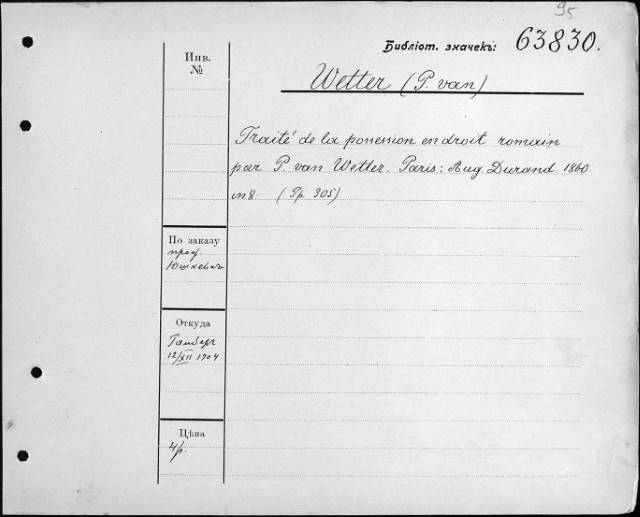 95
Библіот. значекъ: 63830.
Инв.
№
Wetter (P. van)
Traité de la possession en droit romain
par P. van Wetter. Paris: Aug. Durand. 1860.
in 8. (Pp. 305)
По заказу
проф.
Юшкевичъ
Откуда
12/XII 1904
Цѣна
4р.